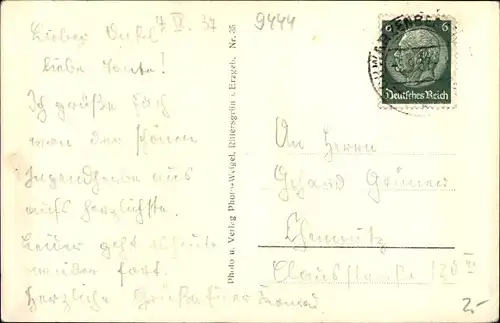 7 IX. 37
9444
Lieber Onkel
liebe Tante!
Ich grüße Euch
von der schönen
aus
aufs herzlichste.
Leider geht es heute
wieder fort.
Herzliche Grüße Euer
Photo u. Verlag Photo-Weigel, Rittersgrün i. Erzgeb. Nr. 35
6 6
Deutsches Reich
An Herrn
Gerhard Grüner
Chemnitz
Clausstraße 120
2,-